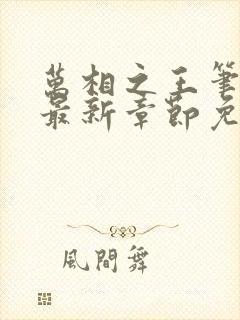 萬相之王筆
最新章節免
風間舞